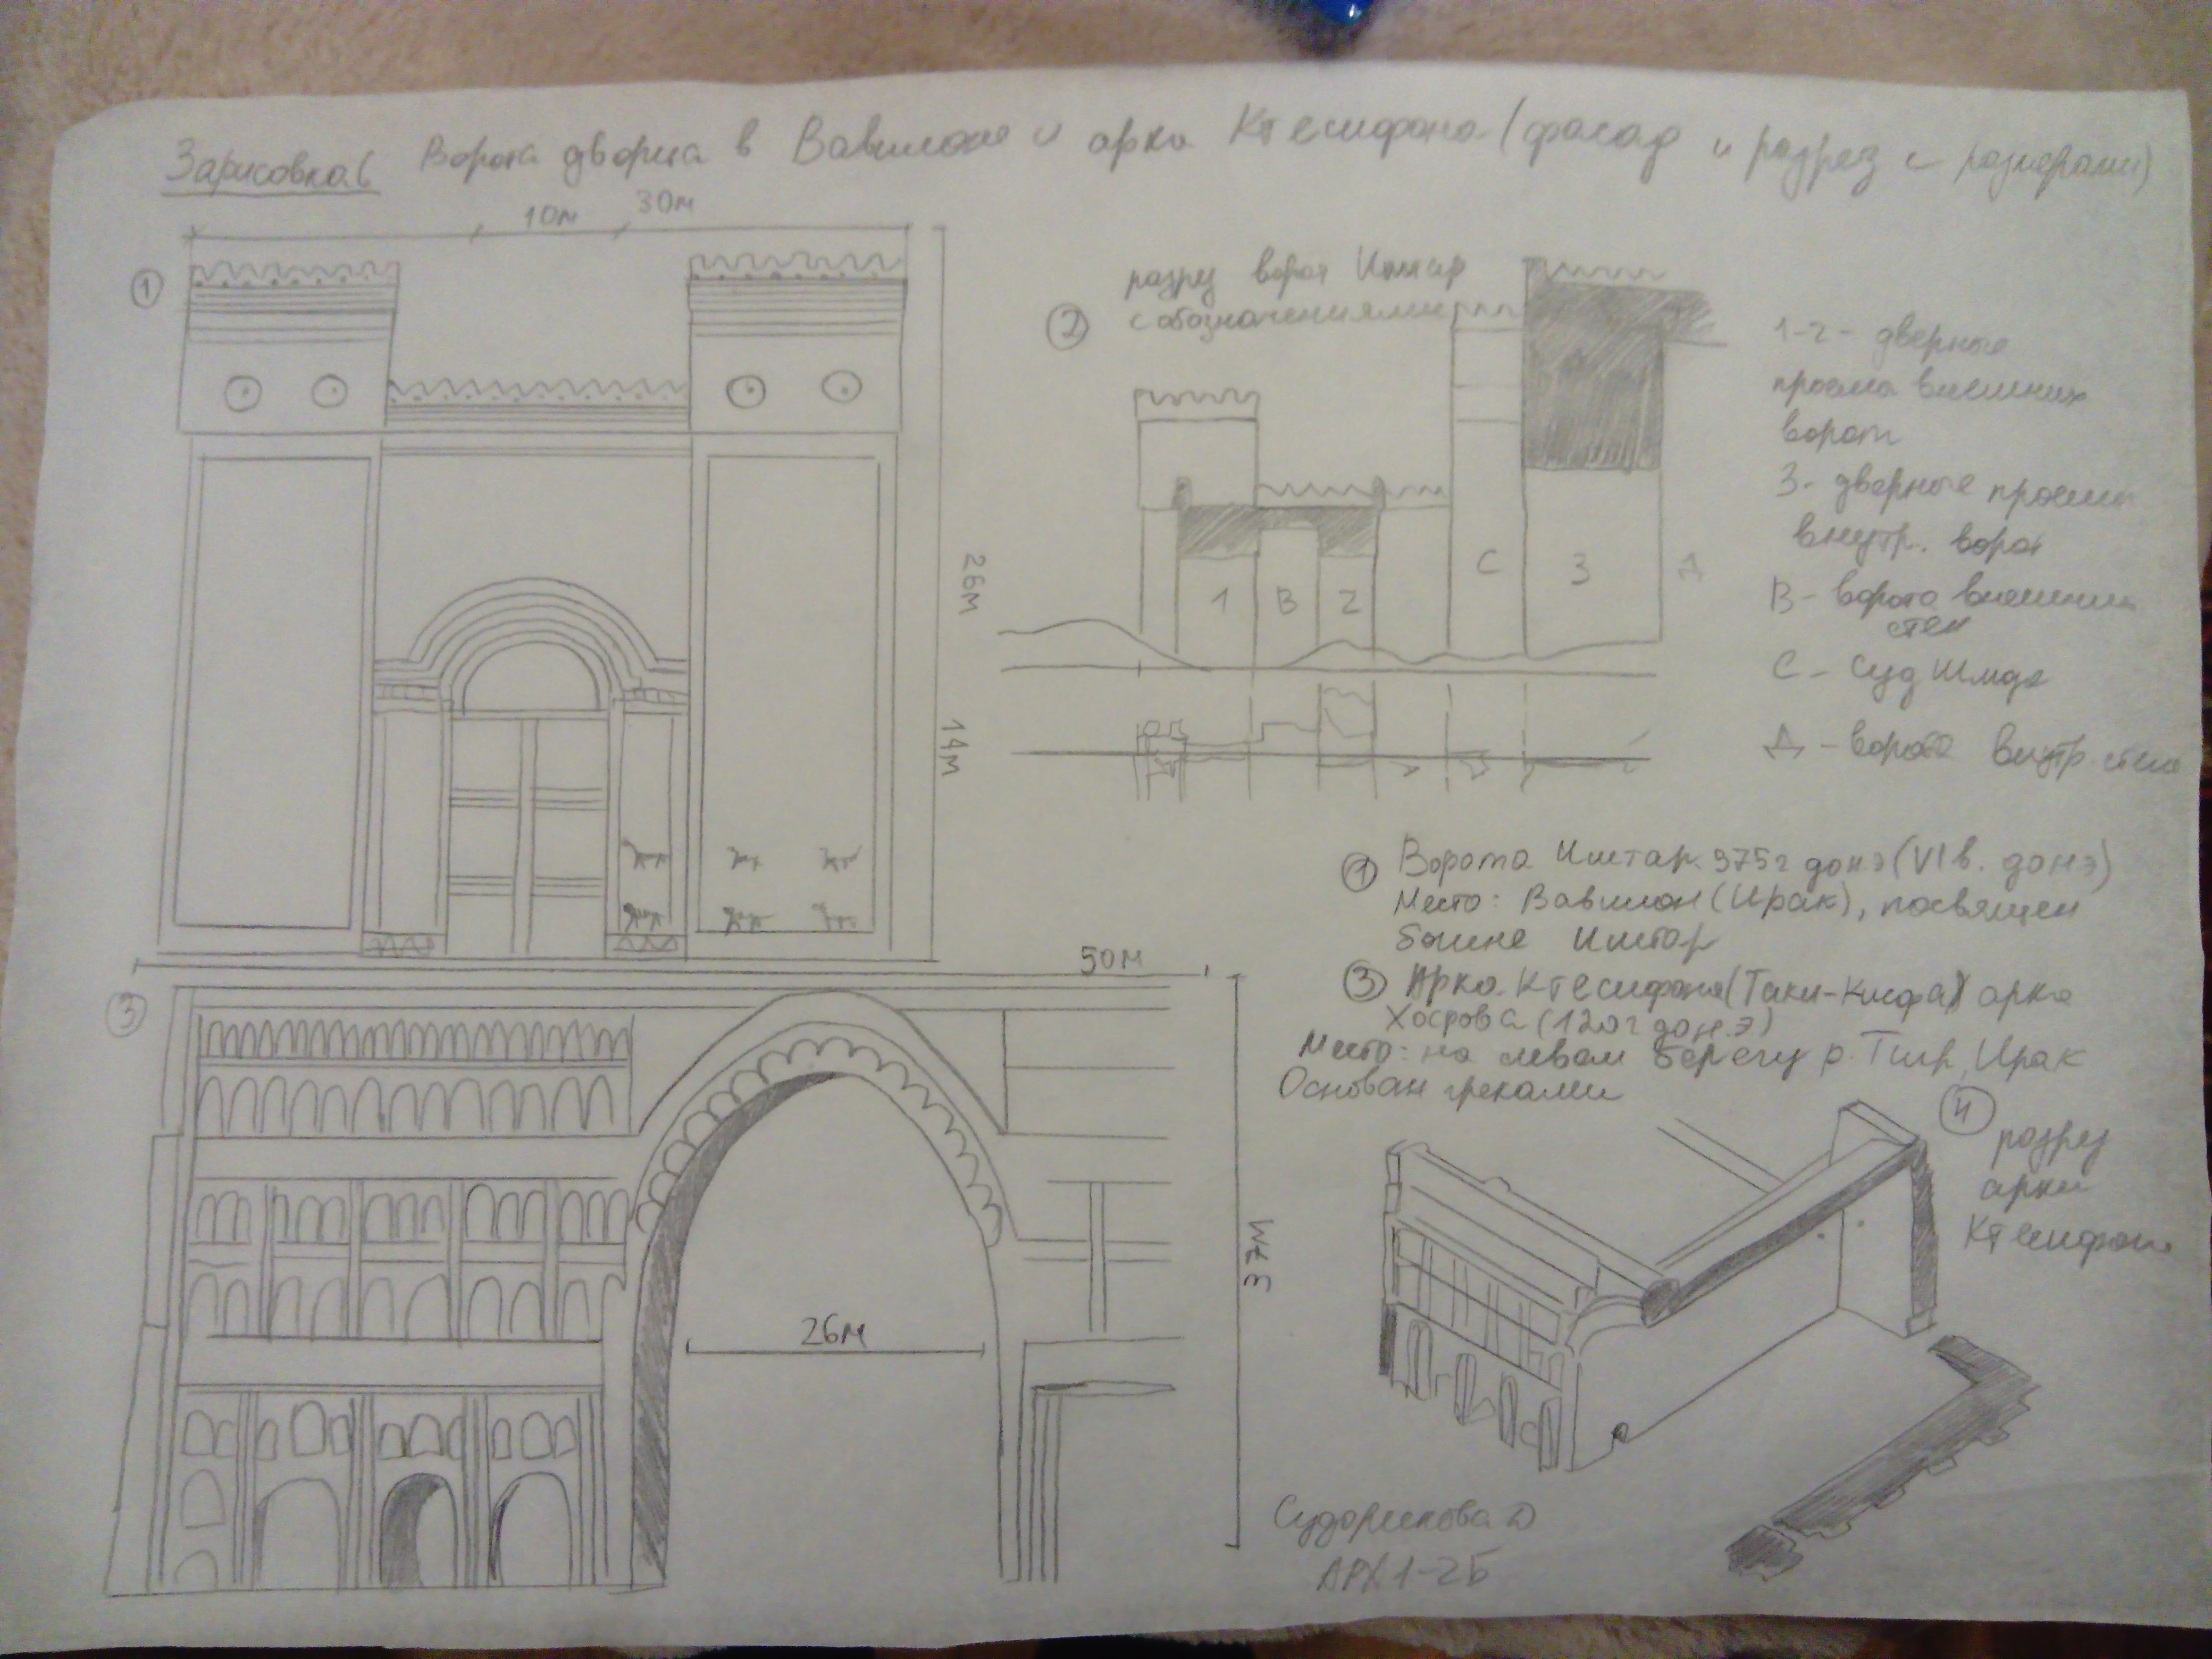 Зарисовка 6 Ворота дворца в Вавилоне и арка Ктесифона (фасад и разрез с размерами)
10м 30м
1
26м
14м
2
разрез ворот Иштар
с обозначениями
1 В 2 С 3 Д
1-2 - дверные
проема внешних
ворот
3 - дверные проемы
внутр. ворот
В - ворота внешних
стен
С - суд
Д - ворота внутр. стен
1 Ворота Иштар. 575г до н.э (VI в. до н э)
Место: Вавилон (Ирак), посвящен
богине Иштар
3 Арка Ктесифона (Таки-Кисра) арка
Хосрова (120г до н.э)
Место: на левом берегу р. Тигр, Ирак
Основан греками
50м
3
37м
26м
4
разрез
арки
Ктесифона
АРХ1-2Б